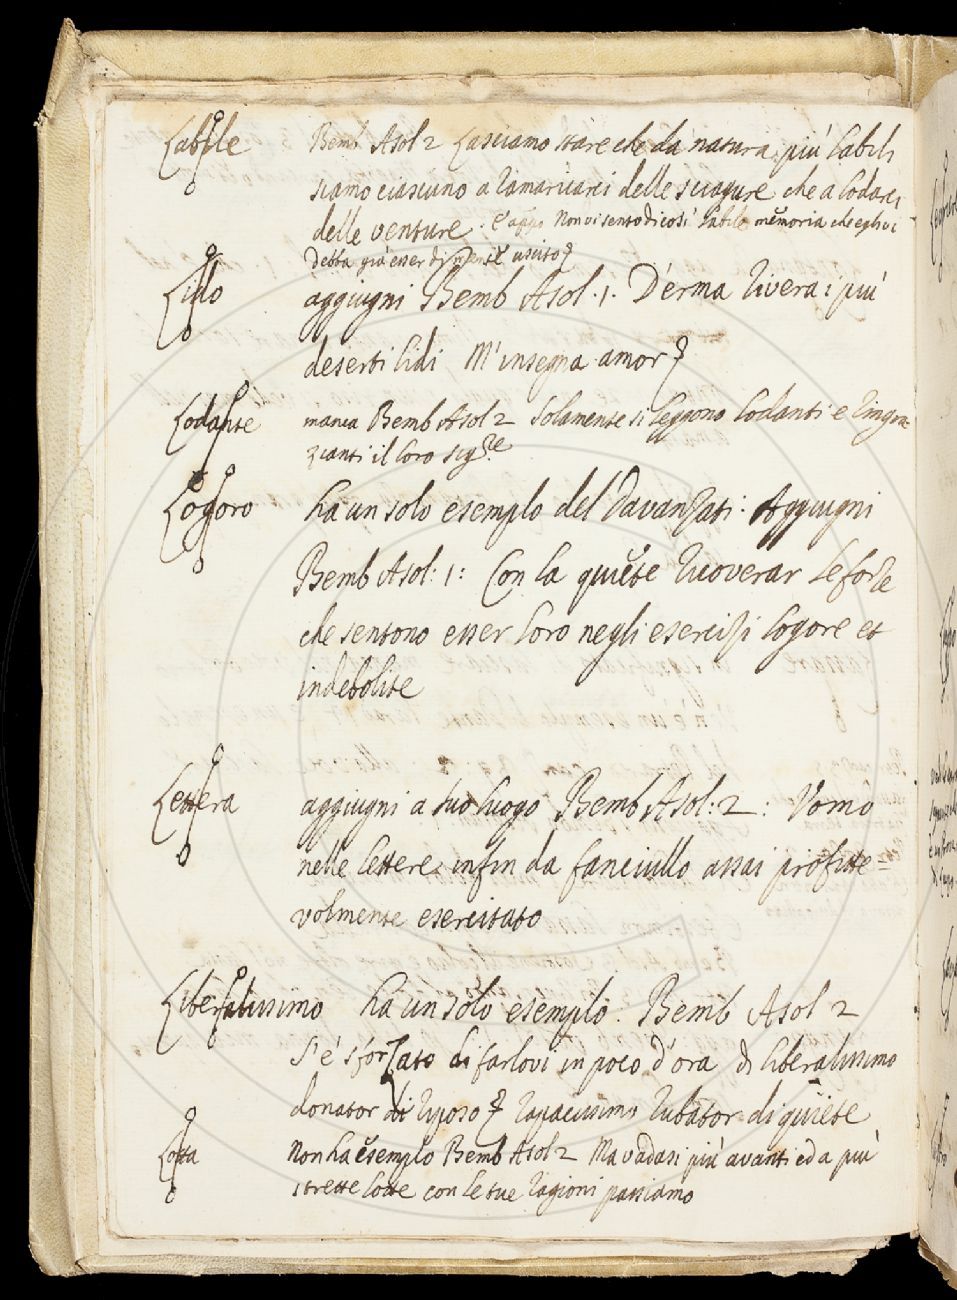 Labile Bemb Asol 2 Lasciamo stare che da natura più labili
siamo ciascuno a ramaricarci delle sciagure che a lodarci
delle venture. E appo Non vi sento di così labile memoria che egli vi
debba già esser di mente uscito
Lido aggiugni Bemb Asol. 1. D'erma rivera i più
deserti lidi M'insegna amor
Lodante manca Bemb Asol 2 Solamente si leggono lodanti e ringra-
zianti il loro sig.re
Logoro ha un solo esempio del Davanzati: Aggiugni
Bemb Asol: 1: Con la quiete ricoverar le forze
che sentono esser loro negli esercizi logore et
indebolite
Lettera aggiugni a suo luogo Bemb Asol: 2: Uomo
nelle lettere infin da fanciullo assai profitte
volmente esercitato
Liberalissimo ha un solo esempio. Bemb Asol 2
S'è sforzato di farlovi in poco d'ora di liberalissimo
donator di riposo rapacissimo rubator di quiete
Lotta Non ha esempio Bemb Asol 2 Ma vadasi più avanti ed a più
strette lotte con le tue ragioni passiamo